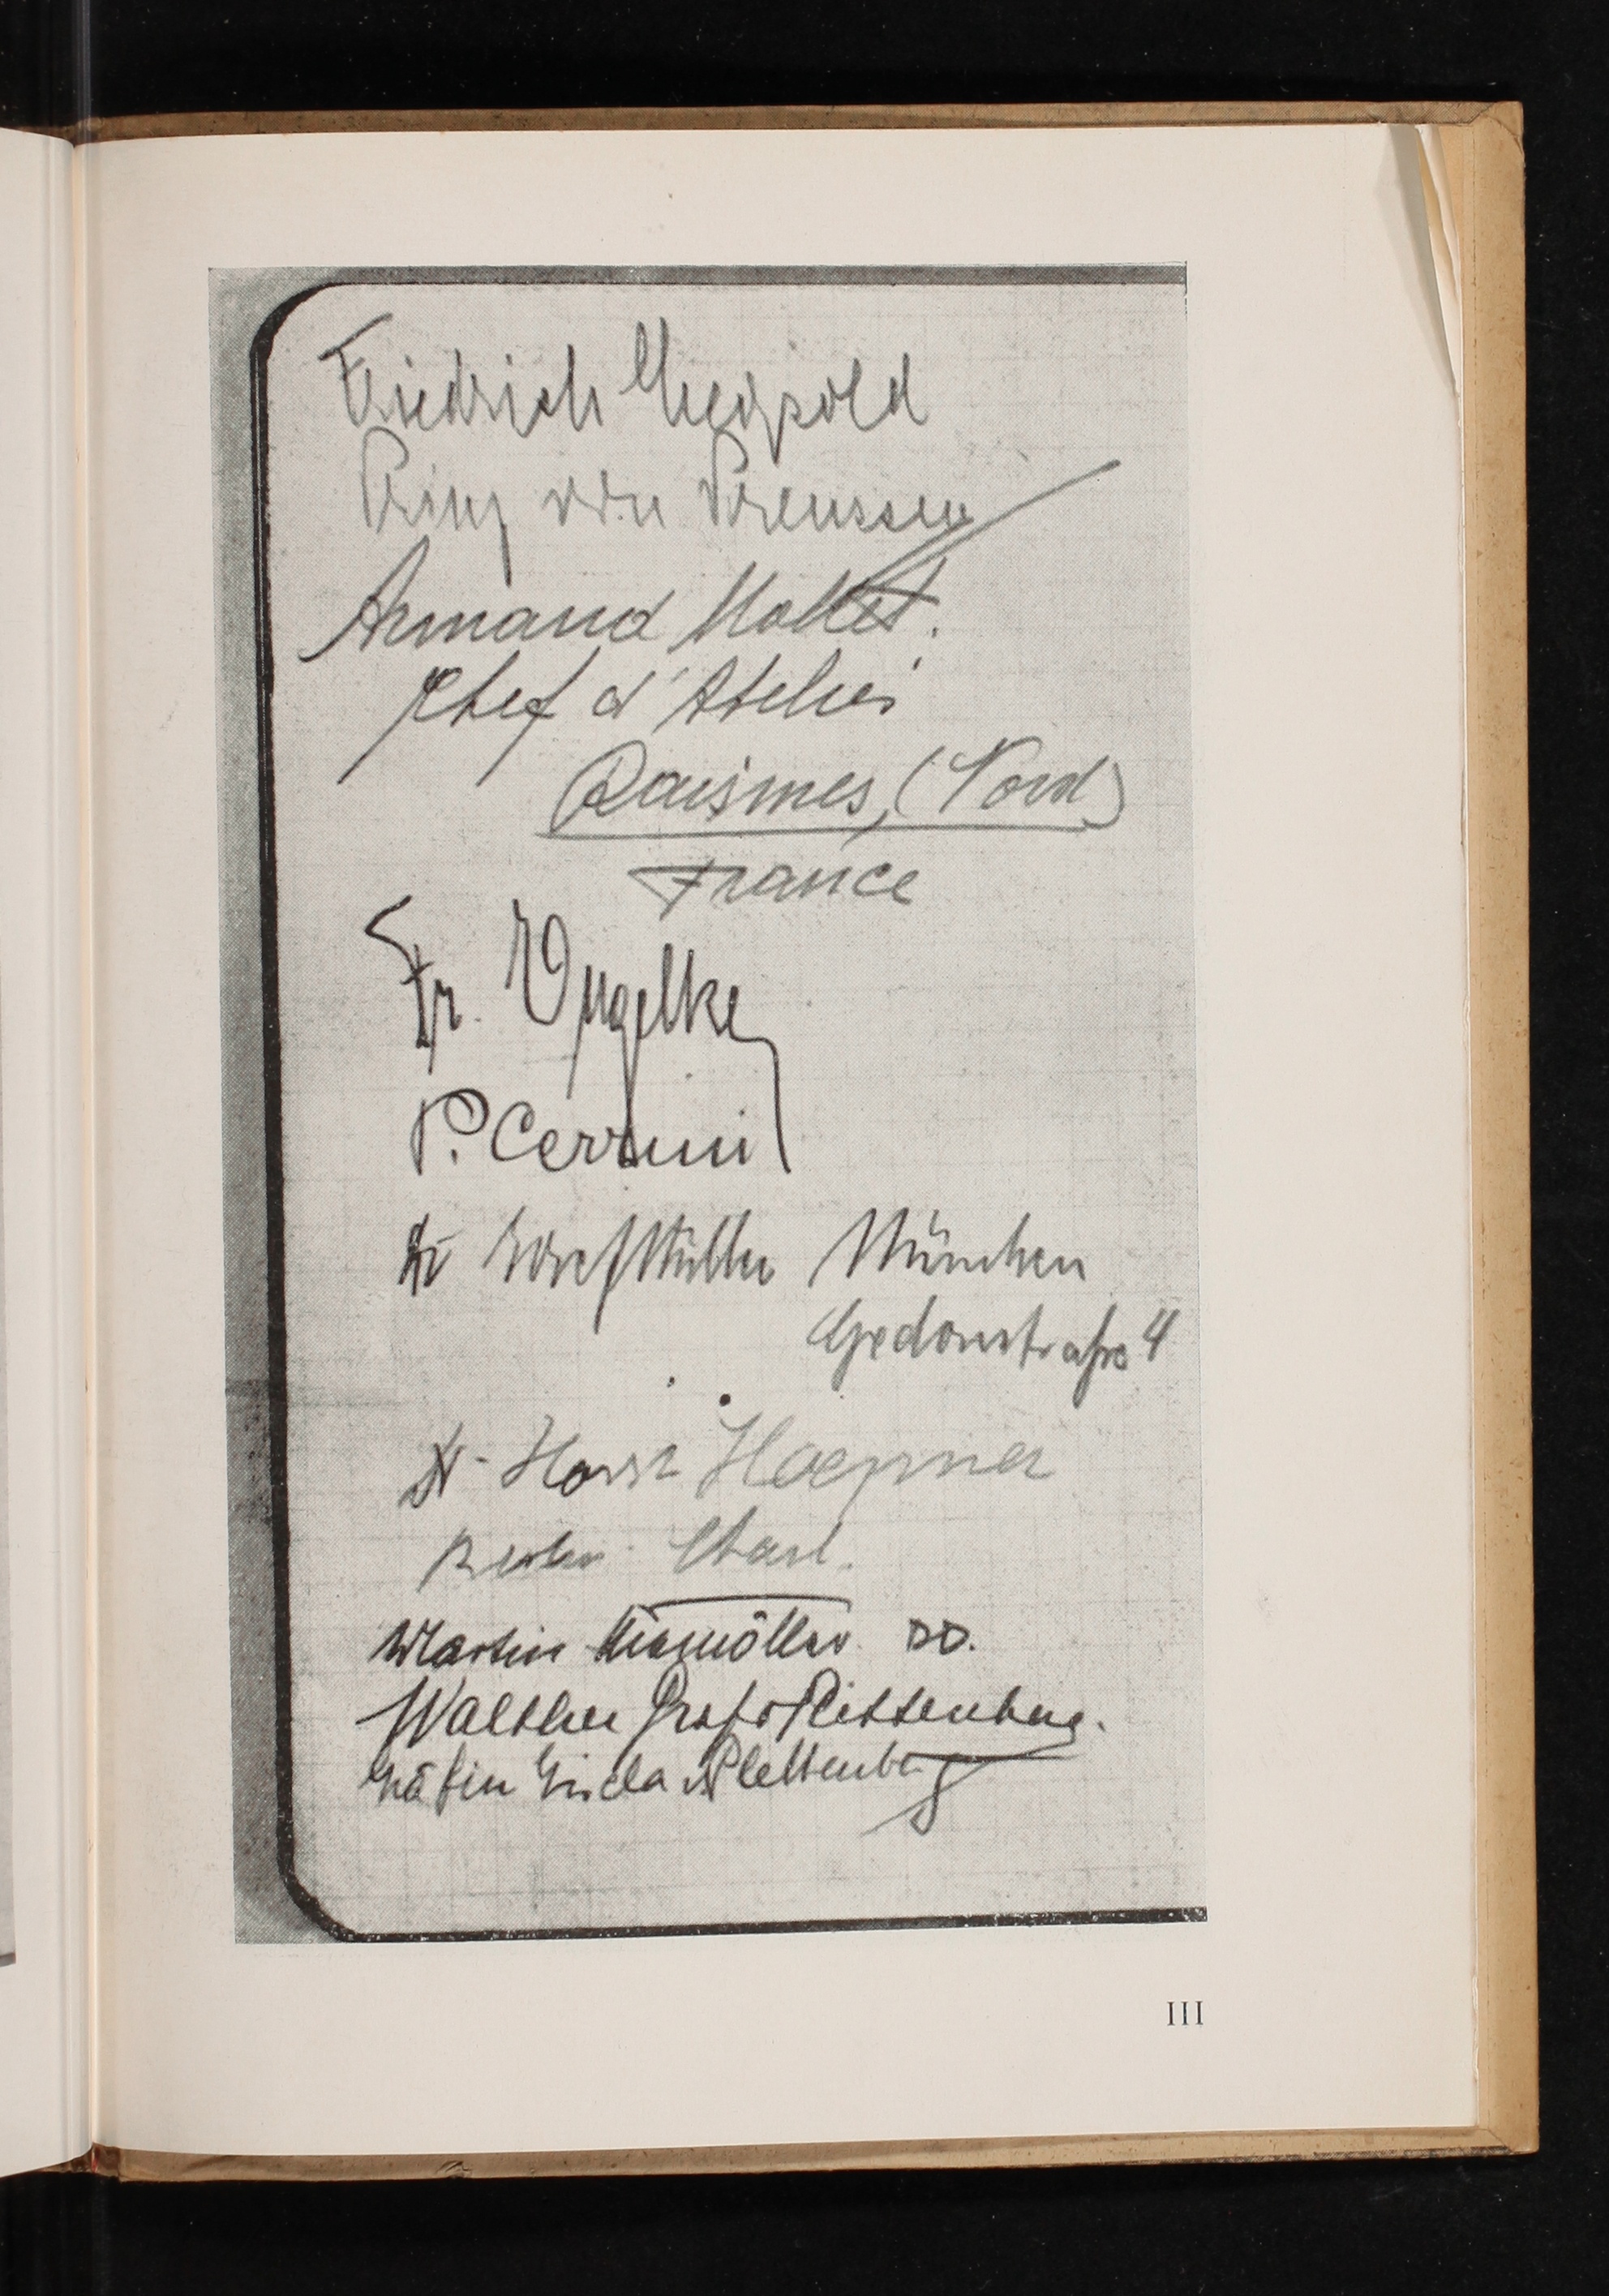 Friedrich Leopold
Prinz von Preussen
Armand Mollet.
Chef d'Atelier
Raismes, (Nord)
France
Fr. Engelke
P. Cerrini
Dr Josef Müller München
Gedonstraße 4
Dr. Horst Hoepner
Berlin-Charl.
Martin Niemöller DD.
Walther Graf v Plettenberg.
Gräfin Gisela v Plettenberg
III